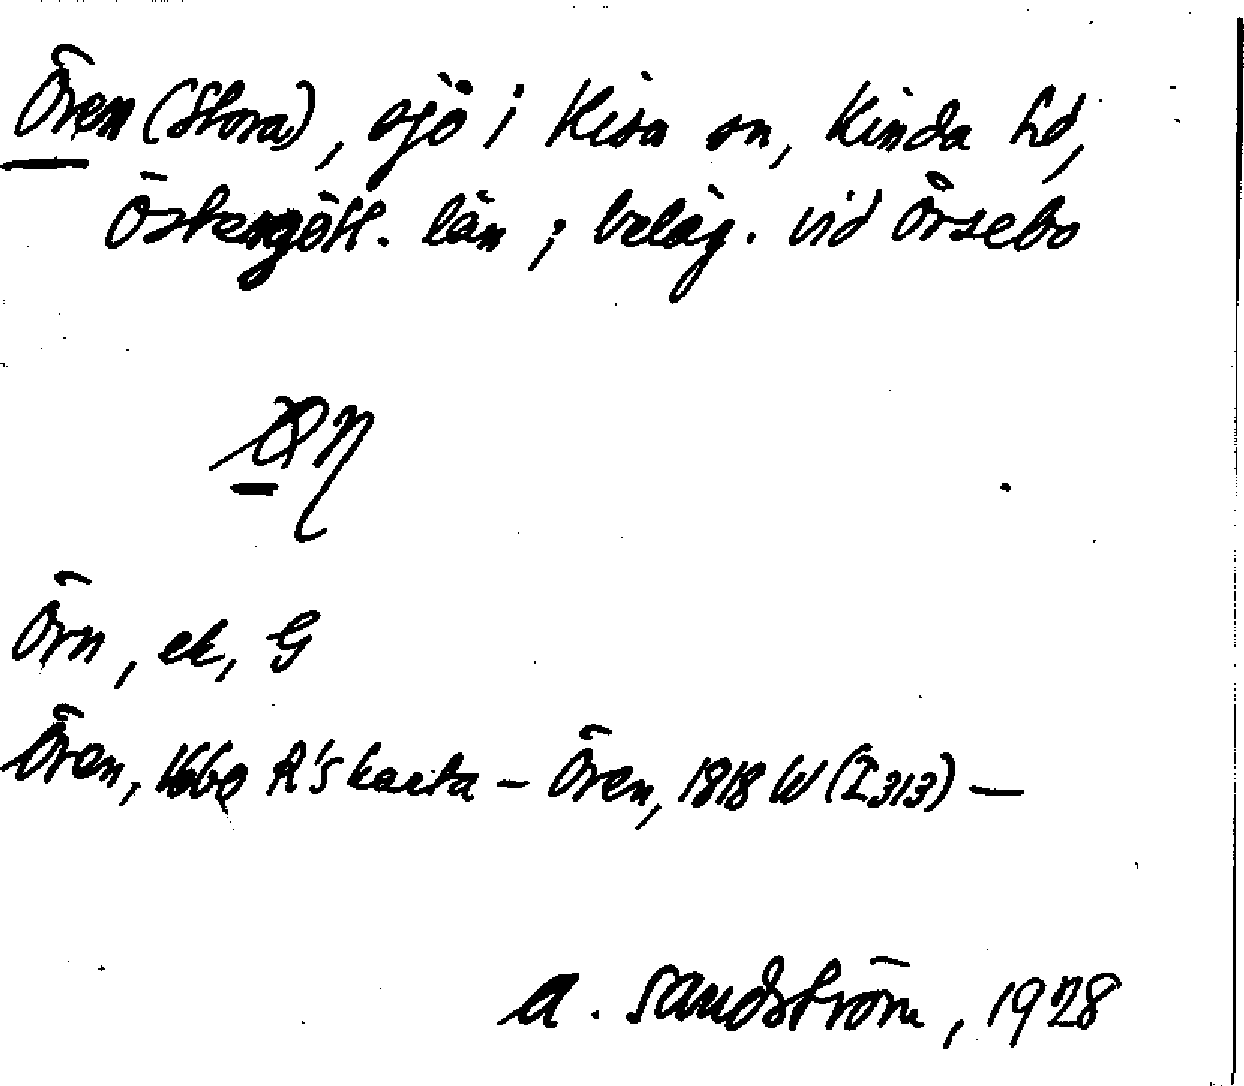 Ören (Stora), sjö i Kisa sn, Kinda hd,
Östergötl. län; beläg. vid Örsebo
Örn, ek, G
Ören, R's karta – Ören, 1818 W (I 313) —
A. Sandström, 1928